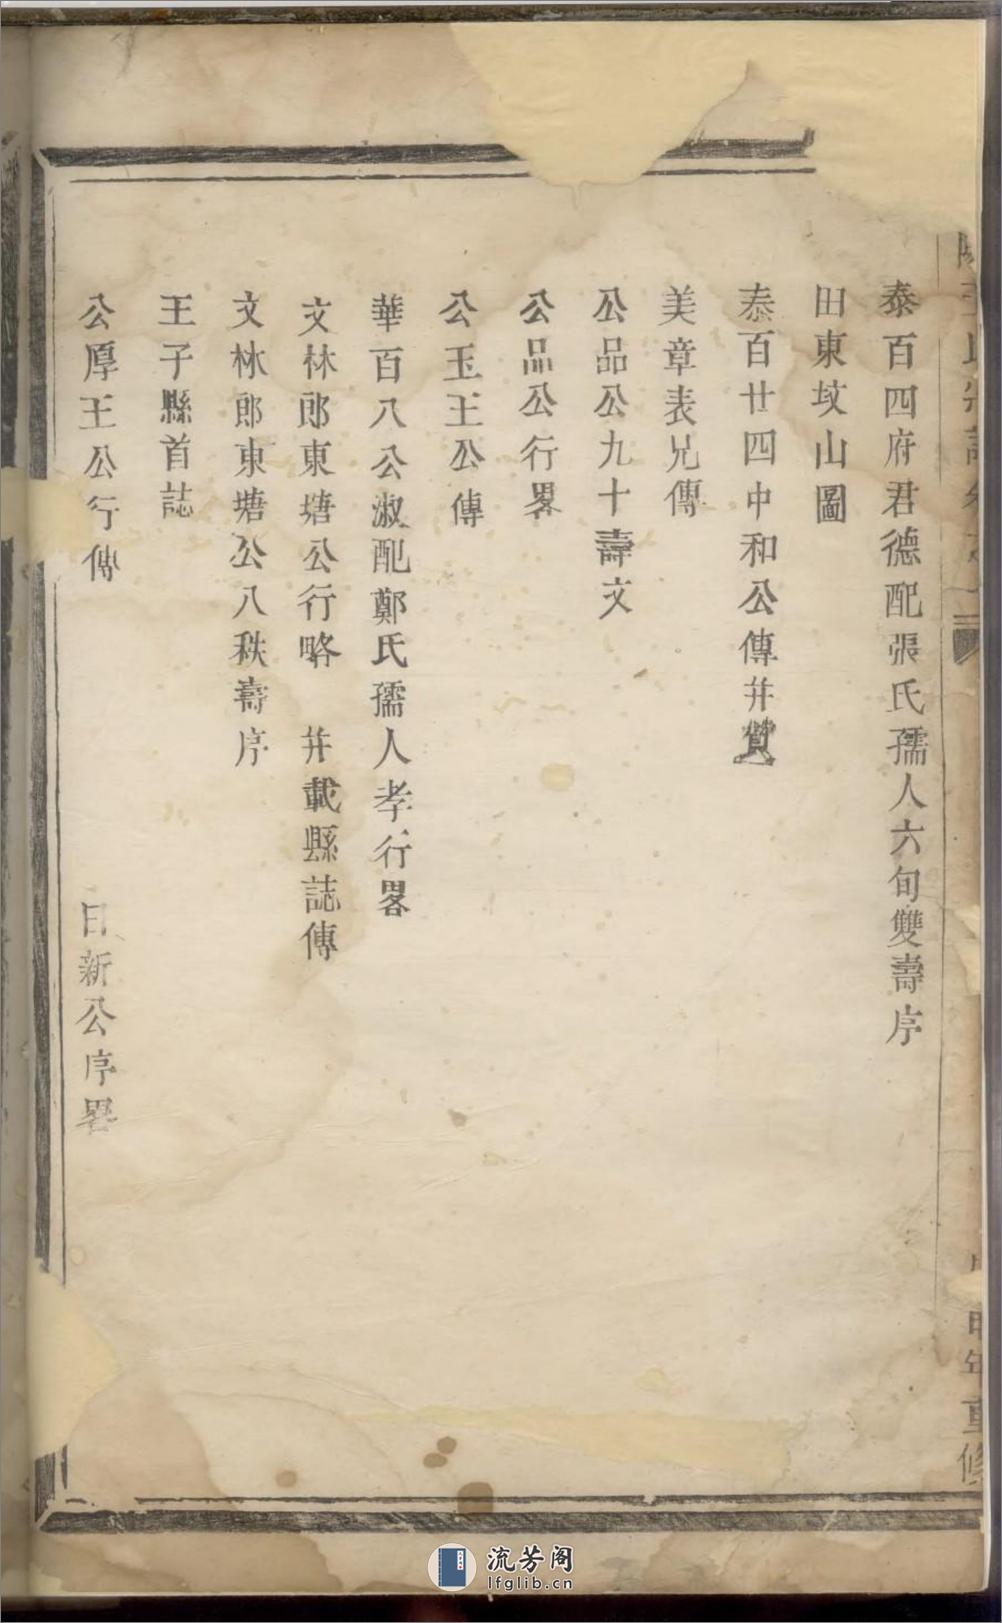 王氏宗譜卷之
年重修
泰百四府君德配張氏孺人六旬雙壽序
田東坟山圖
泰百廿四中和公傳并贊
美章表兄傳
公品公九十壽文
公品公行畧
公玉王公傳
華百八公淑配鄭氏孺人孝行畧
文林郎東塘公行略 并載縣誌傳
文林郎東塘公八秩壽序
王子縣首誌
公厚王公行傳 日新公序畧
流芳阁
lfglib.cn